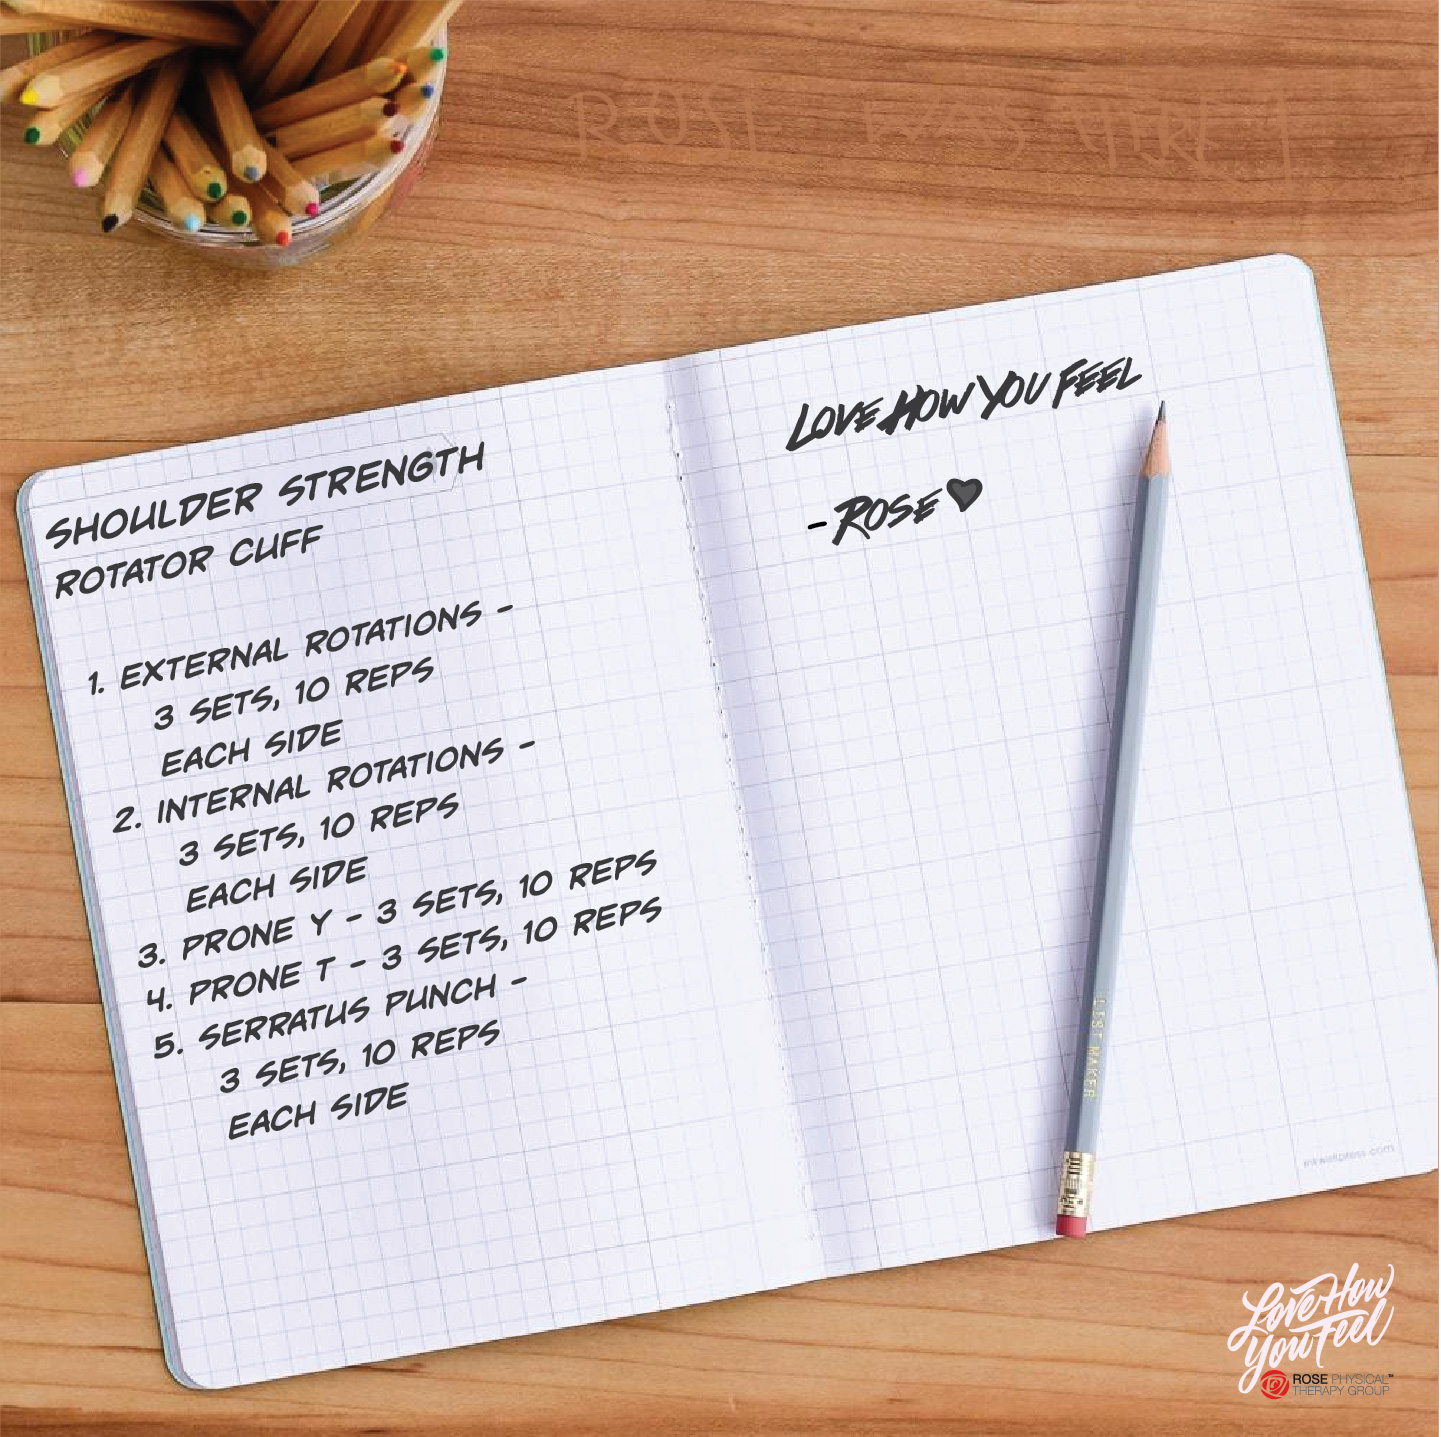 ROSE WAS HERE!
SHOULDER STRENGTH
ROTATOR CUFF
1. EXTERNAL ROTATIONS -
3 SETS, 10 REPS
EACH SIDE
2. INTERNAL ROTATIONS -
3 SETS, 10 REPS
EACH SIDE
3. PRONE Y - 3 SETS, 10 REPS
4. PRONE T - 3 SETS, 10 REPS
5. SERRATUS PUNCH -
3 SETS, 10 REPS
EACH SIDE
LOVE HOW YOU FEEL
- ROSE ♥
LIST MAKER
inkwellpress.com
Love How
You Feel
ROSE PHYSICAL™
THERAPY GROUP